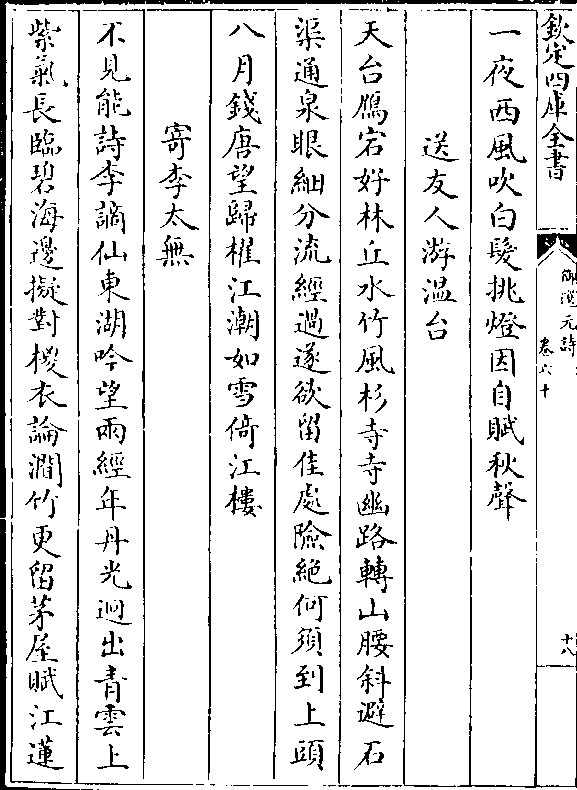 欽定四庫全書
御選元詩
卷六十
十八
一夜西風吹白髮挑燈因自賦秋聲
送友人游溫台
天台鴈宕好林丘水竹風杉寺寺幽路轉山腰斜避石
渠通泉眼細分流經過遂欲留佳處險絶何須到上頭
八月錢唐望歸櫂江潮如雪倚江樓
寄李太無
不見能詩李謫仙東湖吟望兩經年丹光迥出青雲上
紫氣長臨碧海邊擬對椶衣論澗竹更留茅屋賦江蓮